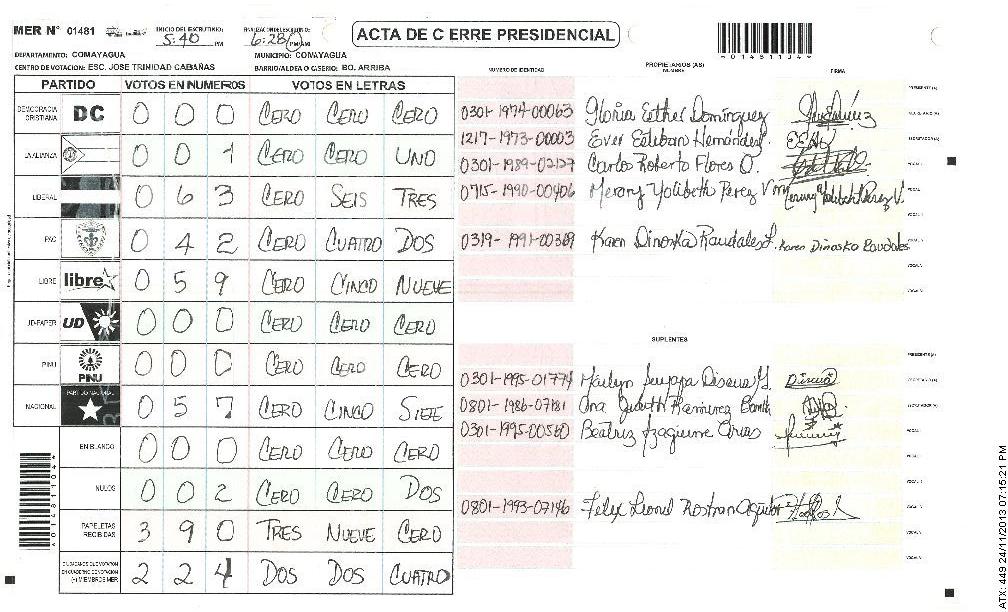 MER Nº 01481 INICIO DEL ESCRUTINIO: 5:40 PM FINALIZACIÓN DEL ESCRUTINIO: 6:28 PM/AM
ACTA DE C ERRE PRESIDENCIAL
*014811044*
DEPARTAMENTO: COMAYAGUA MUNICIPIO: COMAYAGUA
CENTRO DE VOTACION: ESC. JOSE TRINIDAD CABAÑAS BARRIO/ALDEA O CASERIO: BO. ARRIBA
PARTIDO VOTOS EN NUMEROS VOTOS EN LETRAS
DEMOCRACIA CRISTIANA DC 0 0 0 CERO CERO CERO
0 0 1 CERO CERO UNO
LIBERAL 0 6 3 CERO SEIS TRES
PAC 0 4 2 CERO CUATRO DOS
LIBRE libre 0 5 9 CERO CINCO NUEVE
UD 0 0 0 CERO CERO CERO
PINU PINU 0 0 0 CERO CERO CERO
NACIONAL PARTIDO NACIONAL 0 5 7 CERO CINCO SIETE
EN BLANCO 0 0 0 CERO CERO CERO
NULOS 0 0 2 CERO CERO DOS
PAPELETAS RECIBIDAS 3 9 0 TRES NUEVE CERO
2 2 4 DOS DOS CUATRO
*014811044*
NUMERO DE IDENTIDAD PROPIETARIOS (AS) NOMBRE FIRMA
0301-1974-00063 Gloria Esther Domínguez
1217-1973-00003 Ever Esteban Hernández
0301-1989-02127 Carlos Roberto Flores O.
0715-1990-00406 Merary Yolibeth Perez V
0319-1991-00369 Karen Dinoska Raudales Karen Dinoska Raudales
SUPLENTES
0301-1995-01774 Discua
0801-1986-07181 Ana Judith Ramirez
0301-1995-00560 Beatriz Izaguirre Arias
0801-1993-07146 Felix Leonel
ATX: 449 24/11/2013 07:15:21 PM